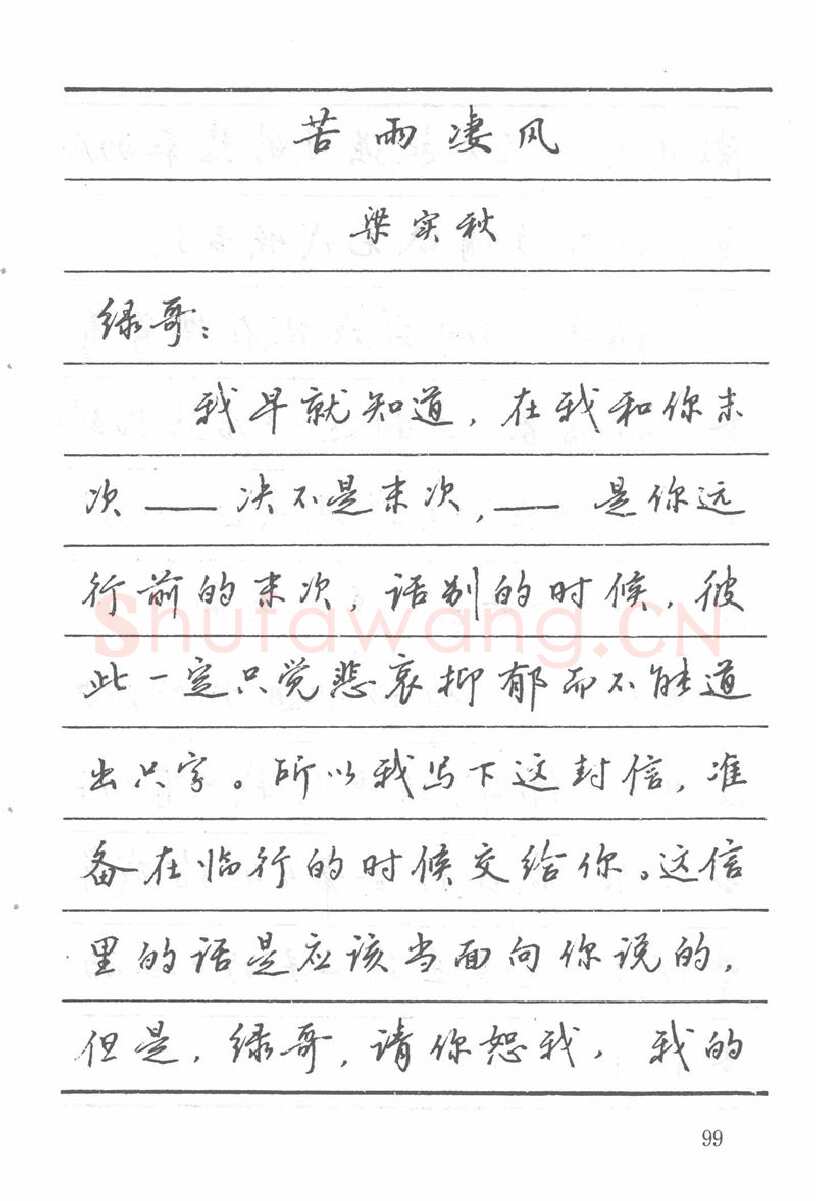 苦雨凄风
梁实秋
绿哥：
我早就知道，在我和你末
次——决不是末次，——是你远
行前的末次，话别的时候，彼
此一定只觉悲哀抑郁而不能道
出只字。所以我写下这封信，准
备在临行的时候交给你。这信
里的话是应该当面向你说的，
但是，绿哥，请你恕我，我的
Shufawang.CN
99